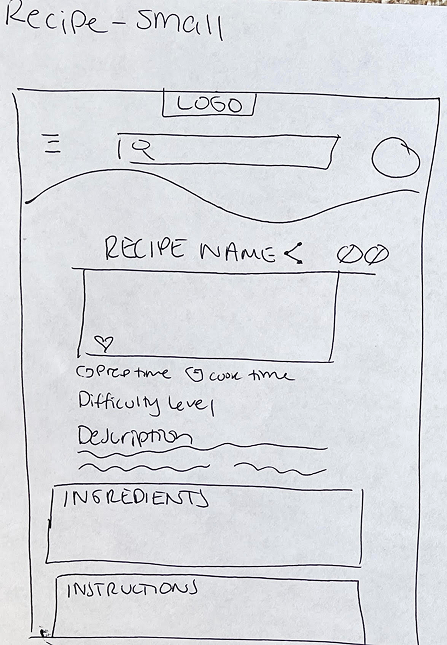 Recipe - Small
LOGO
RECIPE NAME
Prep time cook time
Difficulty level
Description
INGREDIENTS
INSTRUCTIONS